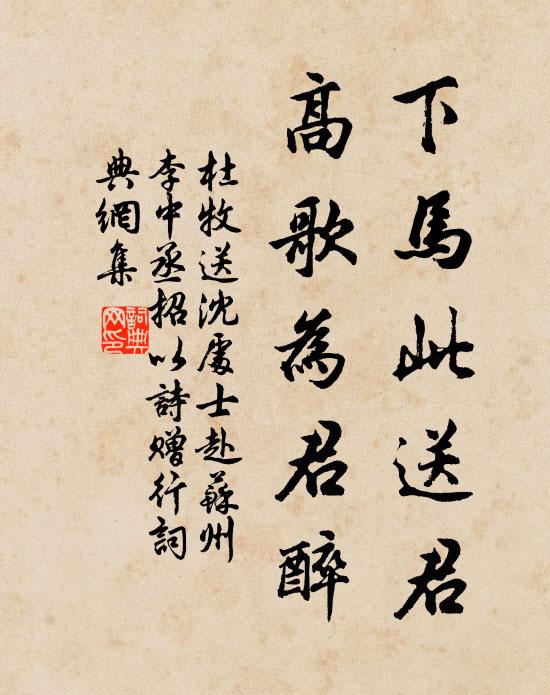 下馬此送君
高歌為君醉
杜牧送沈處士赴蘇州
李中丞招以詩贈行詞
典網集
詞典网印